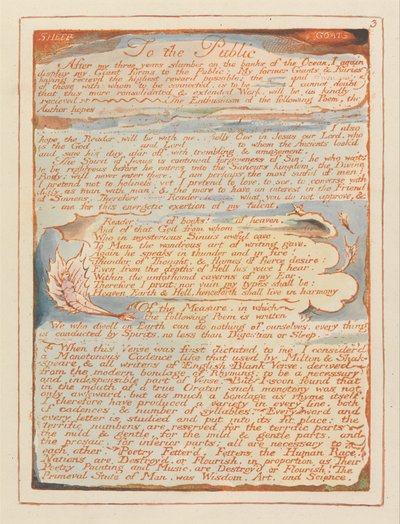 SHEEP
GOATS
3
To the Public
After my three years slumber on the banks of the Ocean, I again
display my Giant forms to the Public: My former Giants & Fairies
having reciev'd the highest reward possible: the
of those with whom to be connected, is to be I cannot doubt
that this more consolidated & extended Work, will be as kindly
recieved The Enthusiasm of the following Poem, the
Author hopes
I also
hope the Reader will be with me, wholly One in Jesus our Lord, who
is the God and Lord to whom the Ancients look'd
and saw his day afar off, with trembling & amazement.
The Spirit of Jesus is continual forgiveness of Sin: he who waits
to be righteous before he enters into the Saviours kingdom, the Divine
Body; will never enter there. I am perhaps the most sinful of men!
I pretend not to holiness! yet I pretend to love, to see, to converse with
daily, as man with man, & the more to have an interest in the Friend
of Sinners. Therefore Reader, what you do not approve, &
me for this energetic exertion of my talent.
Reader! of books! of heaven,
And of that God from whom
Who in mysterious Sinais awful cave
To Man the wondrous art of writing gave,
Again he speaks in thunder and in fire!
Thunder of Thought, & flames of fierce desire:
Even from the depths of Hell his voice I hear,
Within the unfathomd caverns of my Ear.
Therefore I print; nor vain my types shall be:
Heaven, Earth & Hell, henceforth shall live in harmony
Of the Measure, in which
the following Poem is written
We who dwell on Earth can do nothing of ourselves, every thing
is conducted by Spirits, no less than Digestion or Sleep.
When this Verse was first dictated to me I consider'd
a Monotonous Cadence like that used by Milton & Shak-
speare & all writers of English Blank Verse, derived
from the modern bondage of Rhyming; to be a necessary
and indispensible part of Verse. But I soon found that
in the mouth of a true Orator such monotony was not
only awkward, but as much a bondage as rhyme itself.
I therefore have produced a variety in every line, both
of cadences & number of syllables. Every word and
every letter is studied and put into its fit place: the
terrific numbers are reserved for the terrific parts
the mild & gentle, for the mild & gentle parts, and
the prosaic, for inferior parts: all are necessary to
each other. Poetry Fetter'd, Fetters the Human Race.
Nations are Destroy'd, or Flourish, in proportion as Their
Poetry Painting and Music, are Destroy'd or Flourish! The
Primeval State of Man, was Wisdom, Art, and Science.